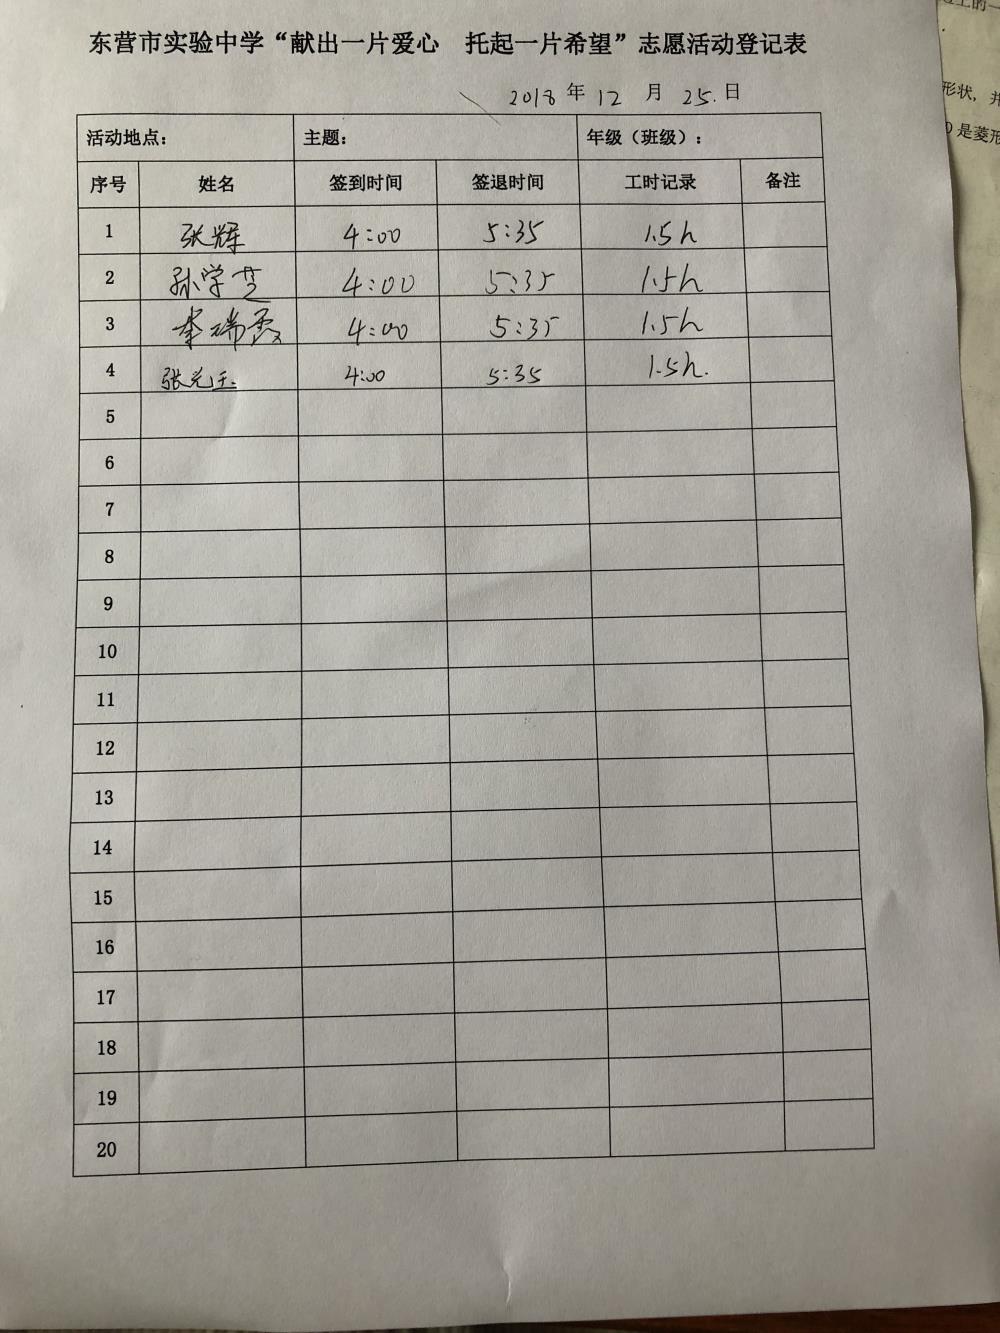 东营市实验中学“献出一片爱心 托起一片希望”志愿活动登记表
2018 年 12 月 25. 日
活动地点： 主题： 年级（班级）：
序号 姓名 签到时间 签退时间 工时记录 备注
1 张辉 4:00 5:35 1.5h
2 孙学芝 4:00 5:35 1.5h
3 李瑞霞 4:00 5:35 1.5h
4 张光玉 4:00 5:35 1.5h.
5
6
7
8
9
10
11
12
13
14
15
16
17
18
19
20
形状，并
是菱形